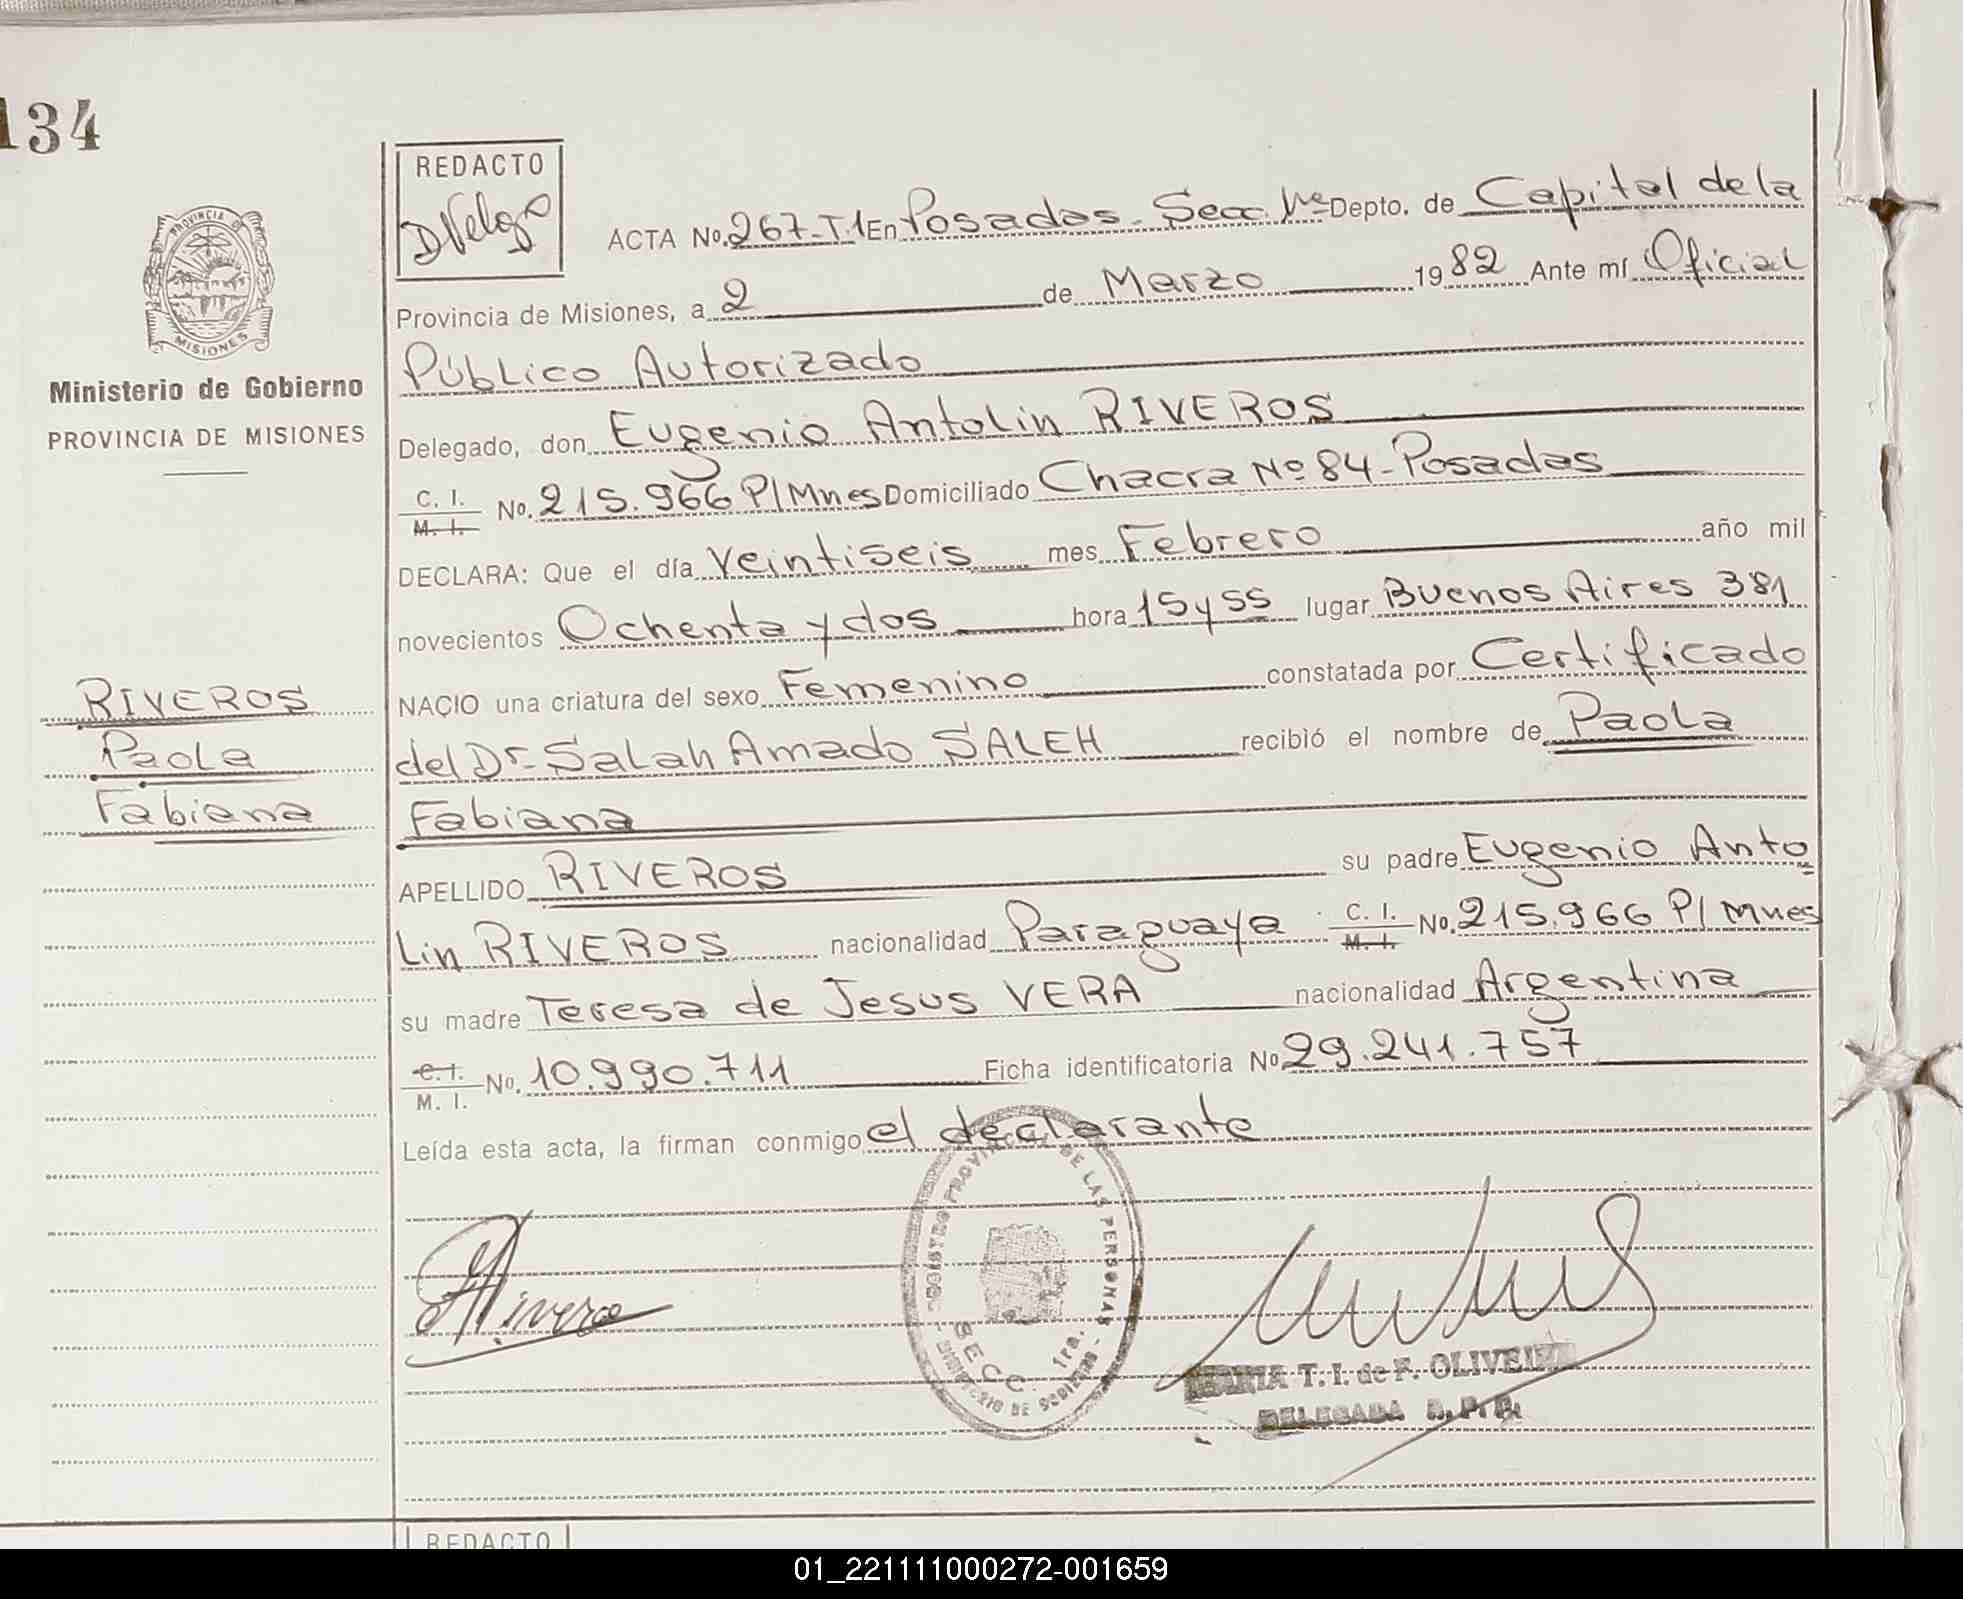 134
REDACTO
DVelazo
ACTA No. 267-T.1 En Posadas- Secc. 1ra Depto. de Capital de la
Provincia de Misiones, a 2 de Marzo 1982 Ante mí Oficial
Público Autorizado
Delegado, don Eugenio Antolin RIVEROS
C. I. M. I. No. 215.966 P/Mnes Domiciliado Chacra Nº 84-Posadas
DECLARA: Que el día Veintiseis mes Febrero año mil
novecientos Ochenta y dos hora 15 y 55 lugar Buenos Aires 381
NACIO una criatura del sexo Femenino constatada por Certificado
del Dr. Salah Amado SALEH recibió el nombre de Paola
Fabiana
APELLIDO RIVEROS su padre Eugenio Anto
Lin RIVEROS nacionalidad Paraguaya C. I. M. I. No. 215.966 P/Mnes
su madre Teresa de Jesus VERA nacionalidad Argentina
C. I. M. I. No. 10.990.711 Ficha identificatoria No 29.241.757
Leída esta acta, la firman conmigo el declarante
PROVINCIA DE
MISIONES
Ministerio de Gobierno
PROVINCIA DE MISIONES
RIVEROS
Paola
Fabiana
REGISTRO PROVINCIAL DE LAS PERSONAS
SECC. 1ra.
MINISTERIO DE GOBIERNO
MARIA T. I. de F. OLIVEIRA
DELEGADA R. P. P.
REDACTO
01_221111000272-001659